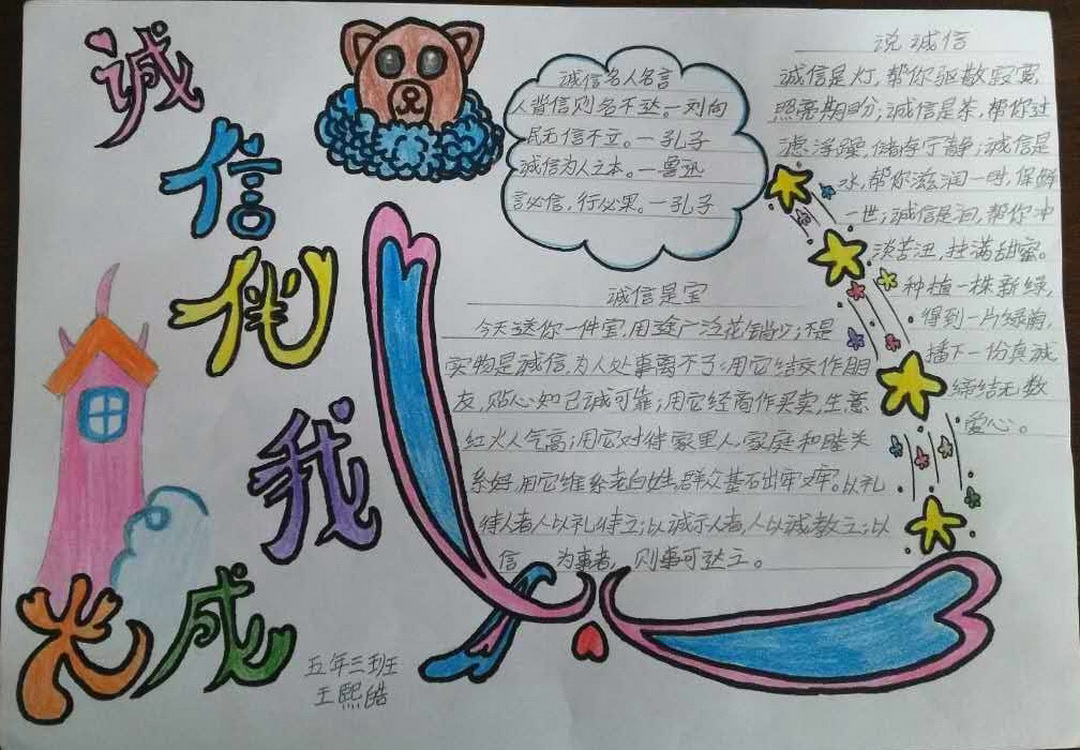 诚
信
伴
我
成
诚信名人名言
人背信则名不达。—刘向
民无信不立。—孔子
诚信为人之本。—鲁迅
言必信，行必果。—孔子
说诚信
诚信是灯，帮你驱散寂寞，
照亮期盼；诚信是茶，帮你过
滤浮躁，储存宁静；诚信是
水，帮你滋润一时，保鲜
一世；诚信是泪，帮你冲
淡苦涩，挂满甜蜜。
种植一株新绿，
得到一片绿荫，
播下一份真诚
缔结无数
爱心。
诚信是宝
今天送你一件宝，用途广泛花销少；不是
实物是诚信，为人处事离不了；用它结交作朋
友，贴心知己诚可靠；用它经商作买卖，生意
红火人气高；用它对待家里人，家庭和睦关
系好，用它维系老百姓，群众基石出牢又牢。以礼
待人者人以礼待之；以诚示人者人以诚教之；以
信 为事者，则事可达之。
五年三班
王熙皓